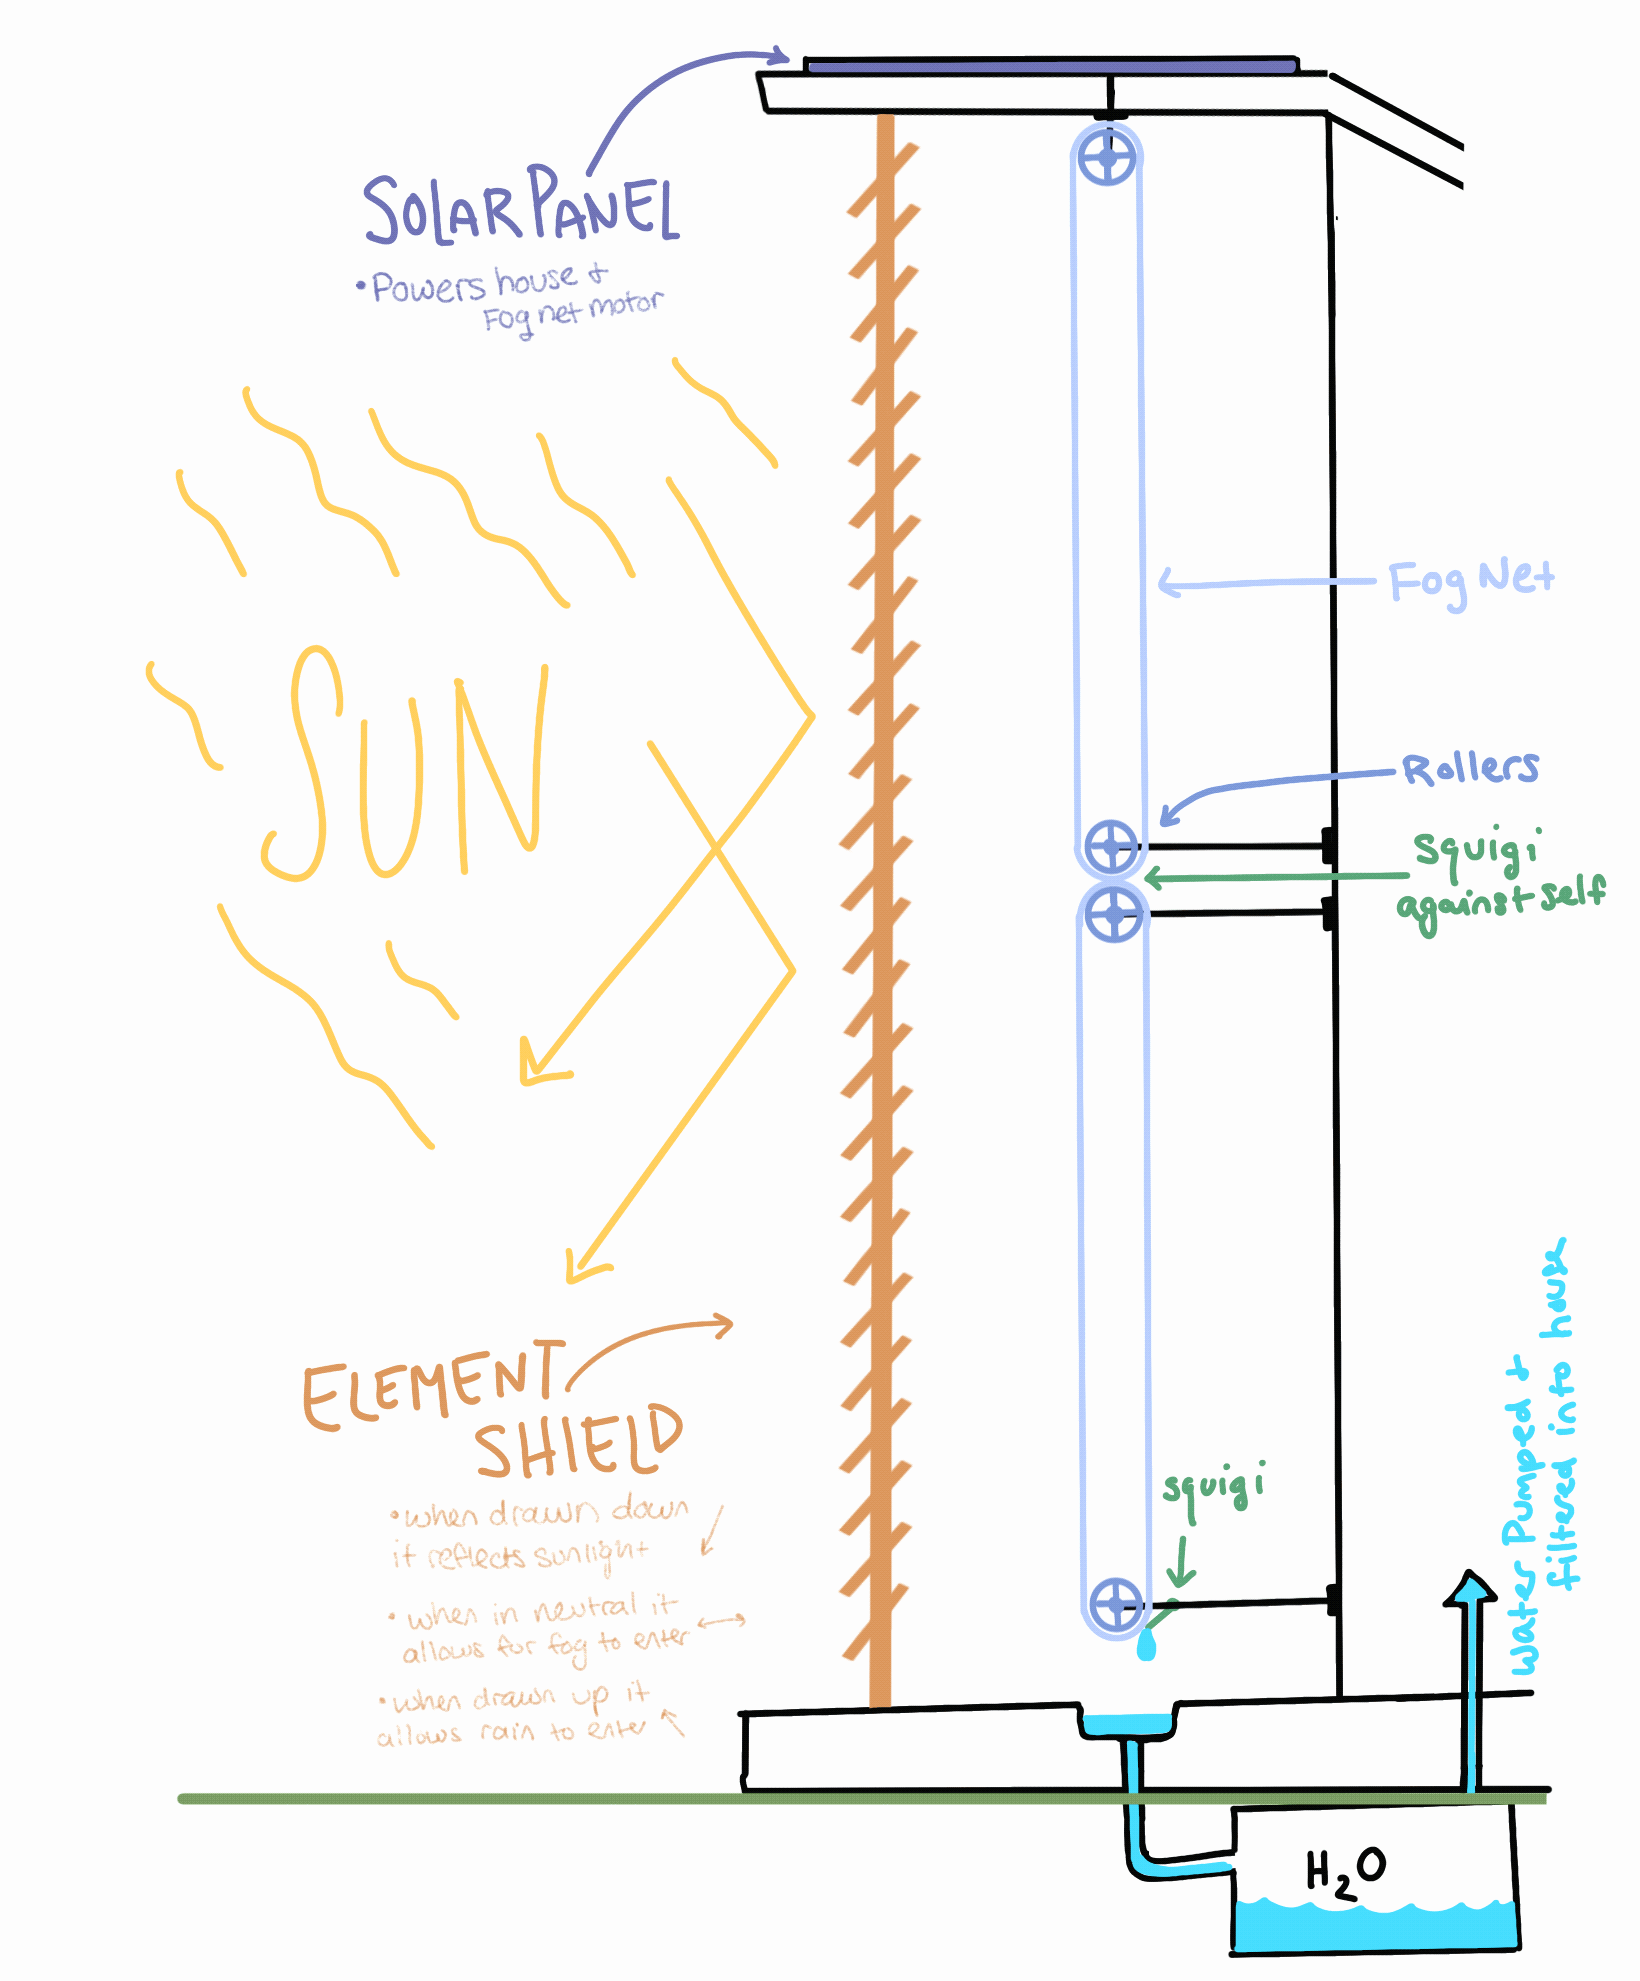 SOLAR PANEL
• Powers house +
Fog net motor
SUN
Fog Net
Rollers
Squigi
against self
ELEMENT
SHIELD
• when drawn down
it reflects sunlight
• when in neutral it
allows for fog to enter
• when drawn up it
allows rain to enter
squigi
water Pumped +
filtered into house
H₂O